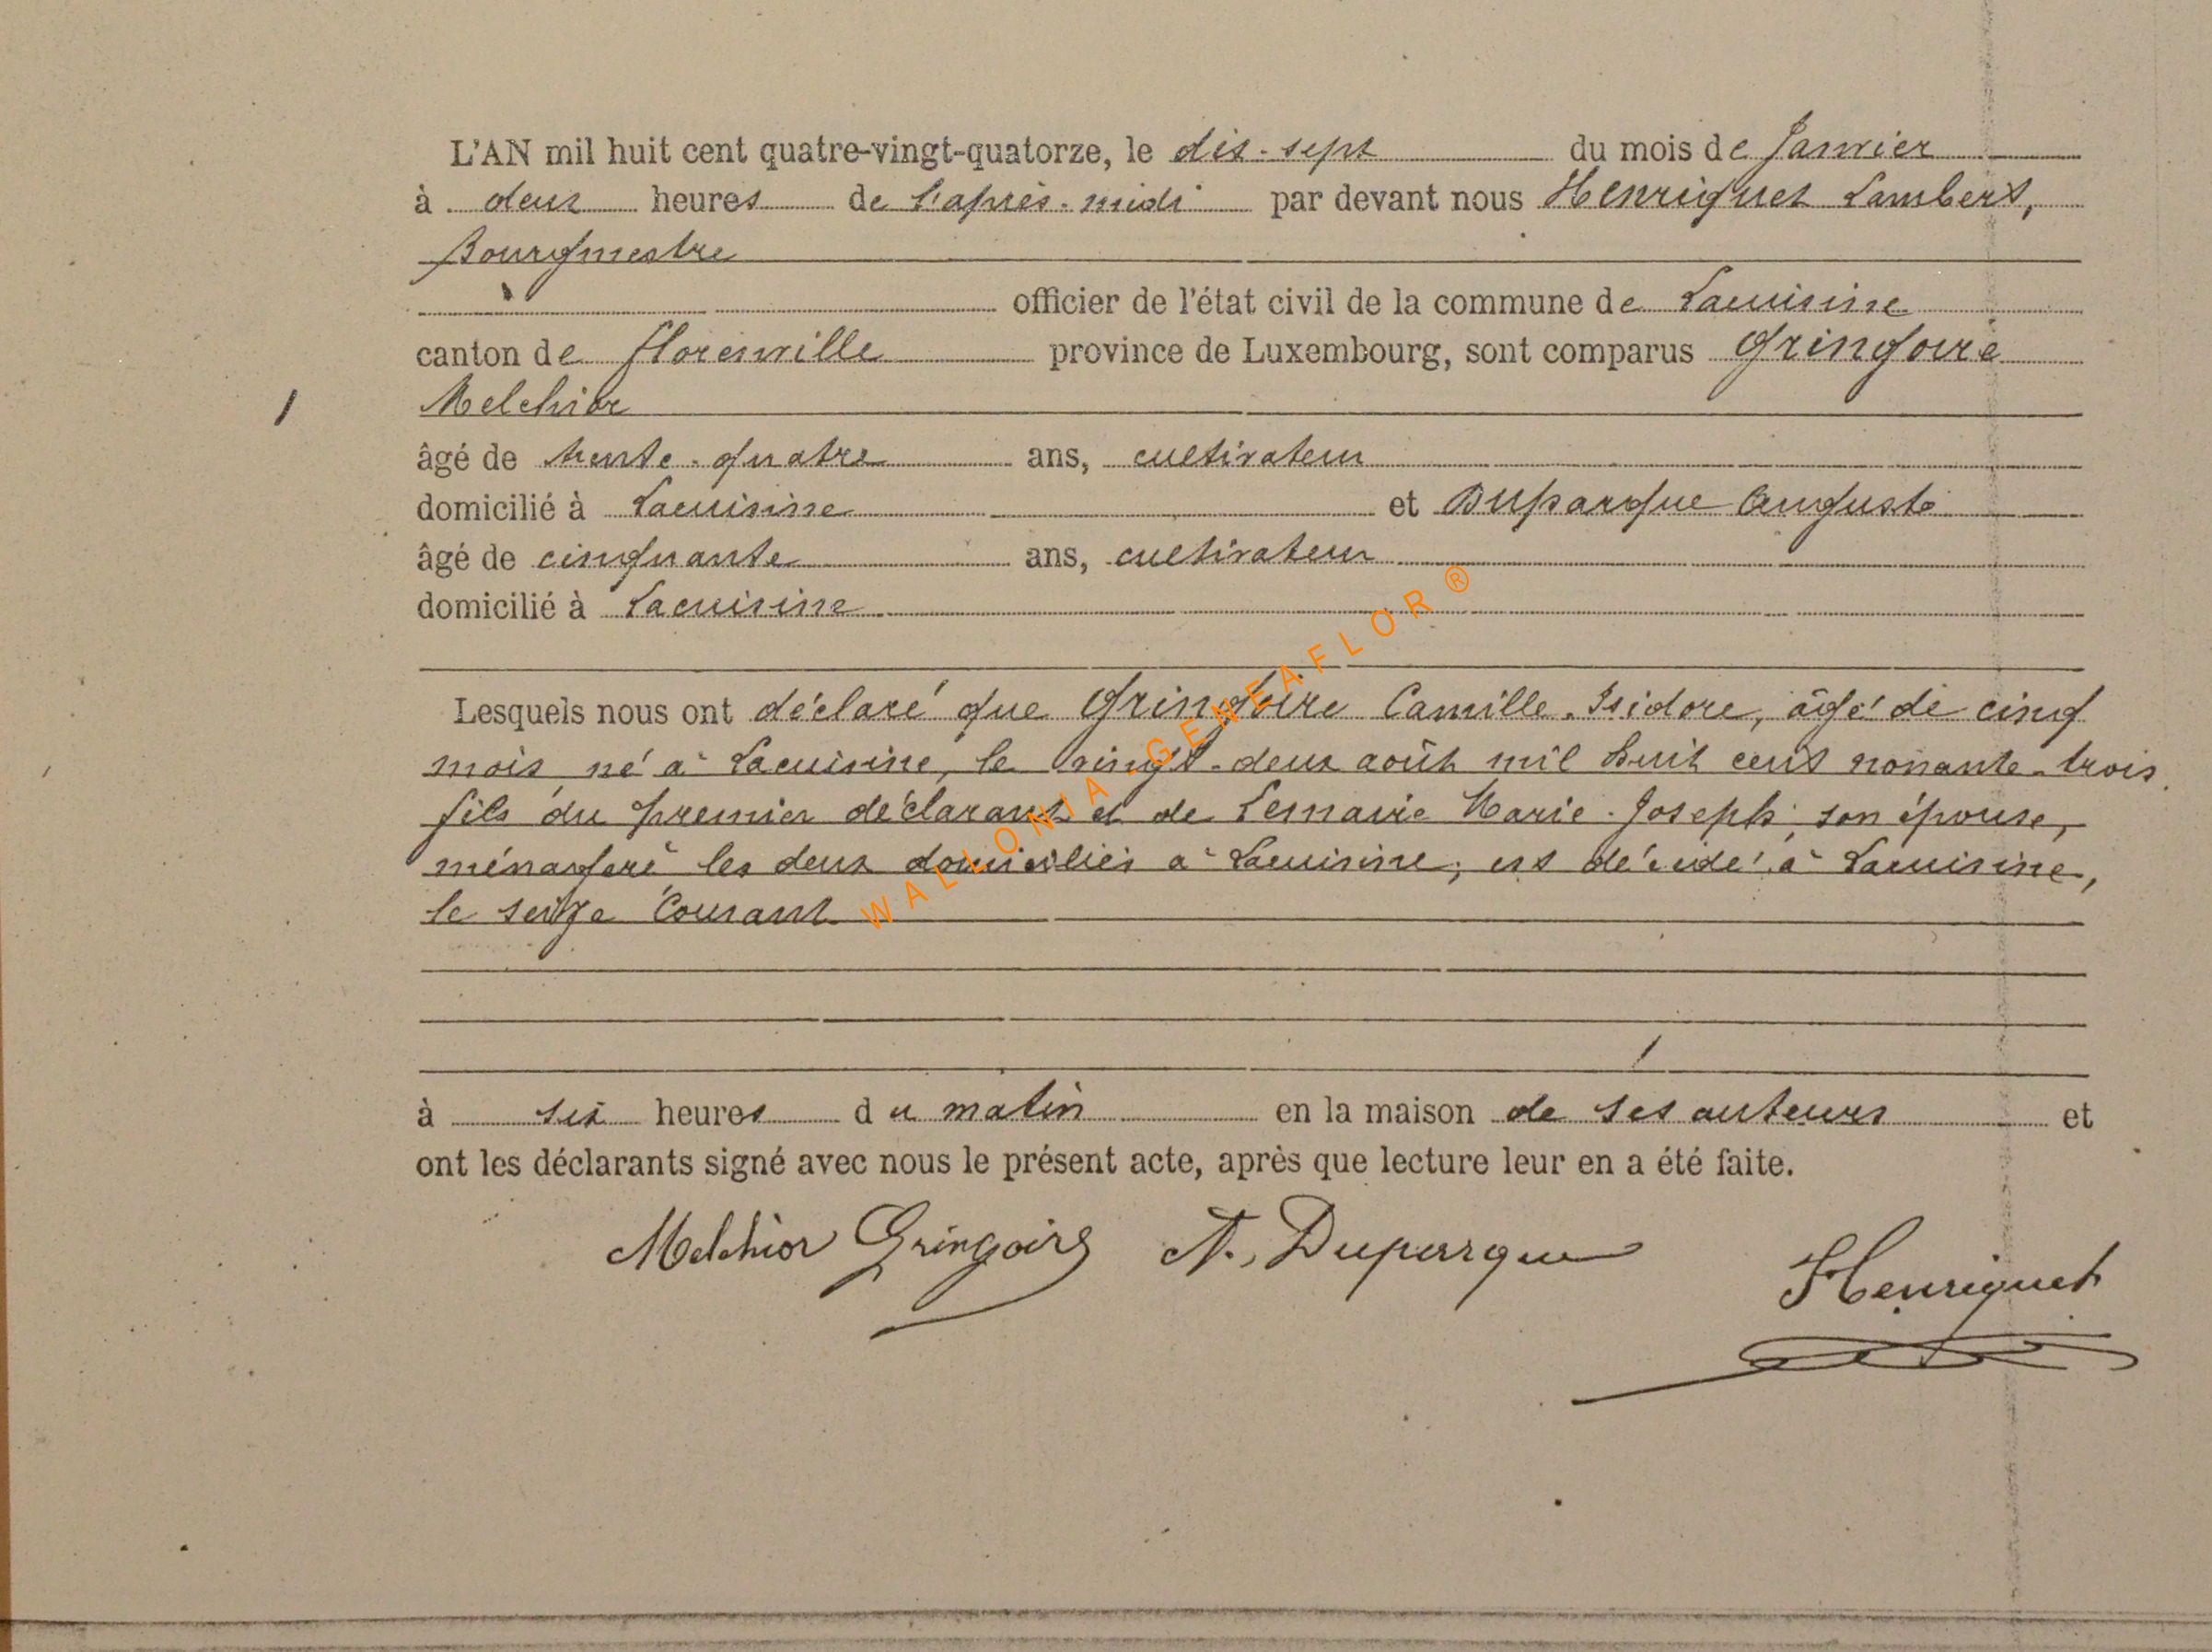 L'AN mil huit cent quatre-vingt-quatorze, le dix-sept du mois de Janvier
à deux heures de l'après-midi par devant nous Henriquet Lambert,
Bourgmestre
officier de l'état civil de la commune de Lacuisine
canton de Florenville province de Luxembourg, sont comparus Gringoire
1 Melchior
âgé de trente-quatre ans, cultivateur
domicilié à Lacuisine et Duparque Auguste
âgé de cinquante ans, cultivateur
domicilié à Lacuisine
Lesquels nous ont déclaré que Gringoire Camille-Isidore, âgé de cinq
mois né à Lacuisine, le vingt-deux août mil huit cent nonante-trois
fils du premier déclarant et de Lemaire Marie-Joseph son épouse,
ménagère les deux domiciliés à Lacuisine, est décédé à Lacuisine,
le seize Courant
à six heures du matin en la maison de ses auteurs et
ont les déclarants signé avec nous le présent acte, après que lecture leur en a été faite.
Melchior Gringoire A. Duparque Henriquet
WALLONIA-GENEAFLOR®